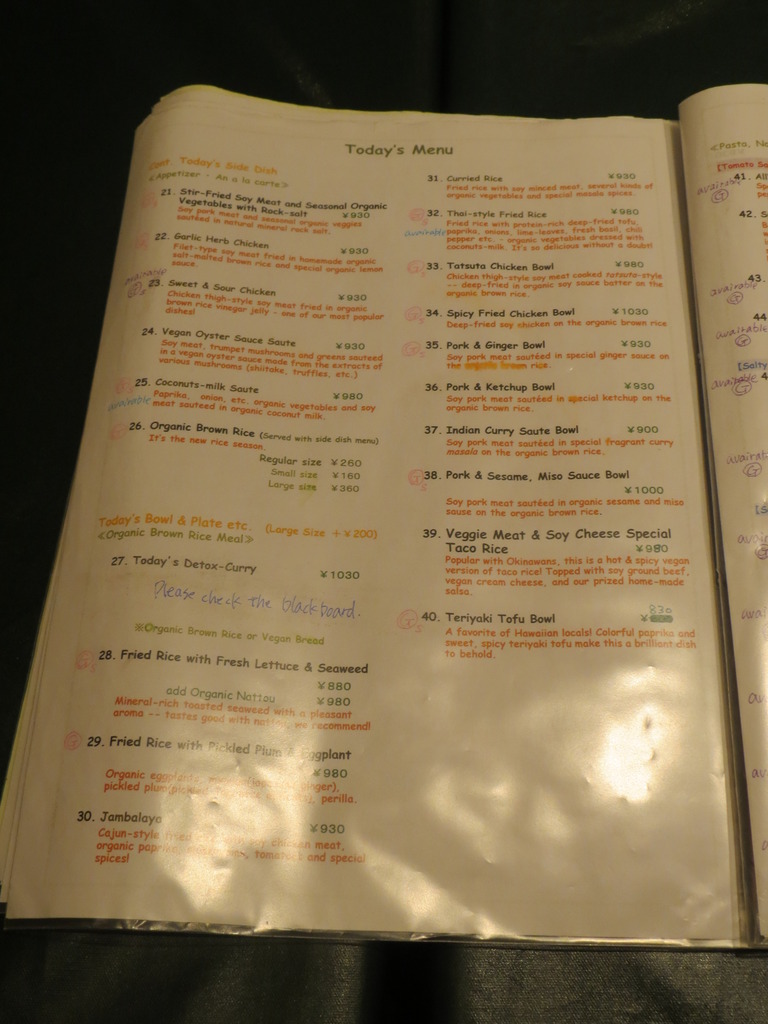 Today's Menu
Cont. Today's Side Dish
<Appetizer - An a la carte>
21. Stir-Fried Soy Meat and Seasonal Organic
Vegetables with Rock-salt ¥930
Soy pork meat and seasonal organic veggies
sautéed in natural mineral rock salt.
22. Garlic Herb Chicken ¥930
Filet-type soy meat fried in homemade organic
salt-malted brown rice and special organic lemon
sauce.
available
23. Sweet & Sour Chicken ¥930
Chicken thigh-style soy meat fried in organic
brown rice vinegar jelly - one of our most popular
dishes!
24. Vegan Oyster Sauce Saute ¥930
Soy meat, trumpet mushrooms and greens sauteed
in a vegan oyster sauce made from the extracts of
various mushrooms (shiitake, truffles, etc.)
25. Coconuts-milk Saute ¥980
available
Paprika, onion, etc. organic vegetables and soy
meat sauteed in organic coconut milk.
26. Organic Brown Rice (Served with side dish menu)
It's the new rice season.
Regular size ¥260
Small size ¥160
Large size ¥360
Today's Bowl & Plate etc. (Large Size +¥200)
<Organic Brown Rice Meal>
27. Today's Detox-Curry ¥1030
Please check the blackboard.
※Organic Brown Rice or Vegan Bread
28. Fried Rice with Fresh Lettuce & Seaweed
¥880
add Organic Nattou ¥980
Mineral-rich toasted seaweed with a pleasant
aroma -- tastes good with nattou, we recommend!
29. Fried Rice with Pickled Plum & Eggplant
¥980
Organic eggplants, ginger),
pickled plum(pickled perilla.
30. Jambalaya ¥930
Cajun-style fried chicken meat,
organic paprika, tomatoes and special
spices!
31. Curried Rice ¥930
Fried rice with soy minced meat, several kinds of
organic vegetables and special masala spices.
32. Thai-style Fried Rice ¥980
available
Fried rice with protein-rich deep-fried tofu,
paprika, onions, lime-leaves, fresh basil, chili
pepper etc. - organic vegetables dressed with
coconuts-milk. It's so delicious without a doubt!
33. Tatsuta Chicken Bowl ¥980
Chicken thigh-style soy meat cooked tatsuta-style
-- deep-fried in organic soy sauce batter on the
organic brown rice.
34. Spicy Fried Chicken Bowl ¥1030
Deep-fried soy chicken on the organic brown rice
35. Pork & Ginger Bowl ¥930
Soy pork meat sautéed in special ginger sauce on
the organic brown rice.
36. Pork & Ketchup Bowl ¥930
Soy pork meat sautéed in special ketchup on the
organic brown rice.
37. Indian Curry Saute Bowl ¥900
Soy pork meat sautéed in special fragrant curry
masala on the organic brown rice.
38. Pork & Sesame, Miso Sauce Bowl
¥1000
Soy pork meat sautéed in organic sesame and miso
sause on the organic brown rice.
39. Veggie Meat & Soy Cheese Special
Taco Rice ¥980
Popular with Okinawans, this is a hot & spicy vegan
version of taco rice! Topped with soy ground beef,
vegan cream cheese, and our prized home-made
salsa.
40. Teriyaki Tofu Bowl ¥830
A favorite of Hawaiian locals! Colorful paprika and
sweet, spicy teriyaki tofu make this a brilliant dish
to behold.
<Pasta,
[Tomato
41.
available
G
42.
43.
available
G
44
available
G
[Salty
available
G
G